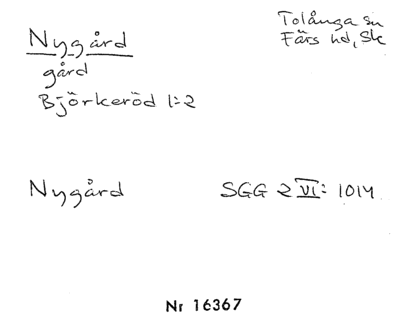 Nygård
gård
Björkeröd 1:2
Tolånga sn
Färs hd, Sk
Nygård SGG 2 VI: 1014
Nr 16367